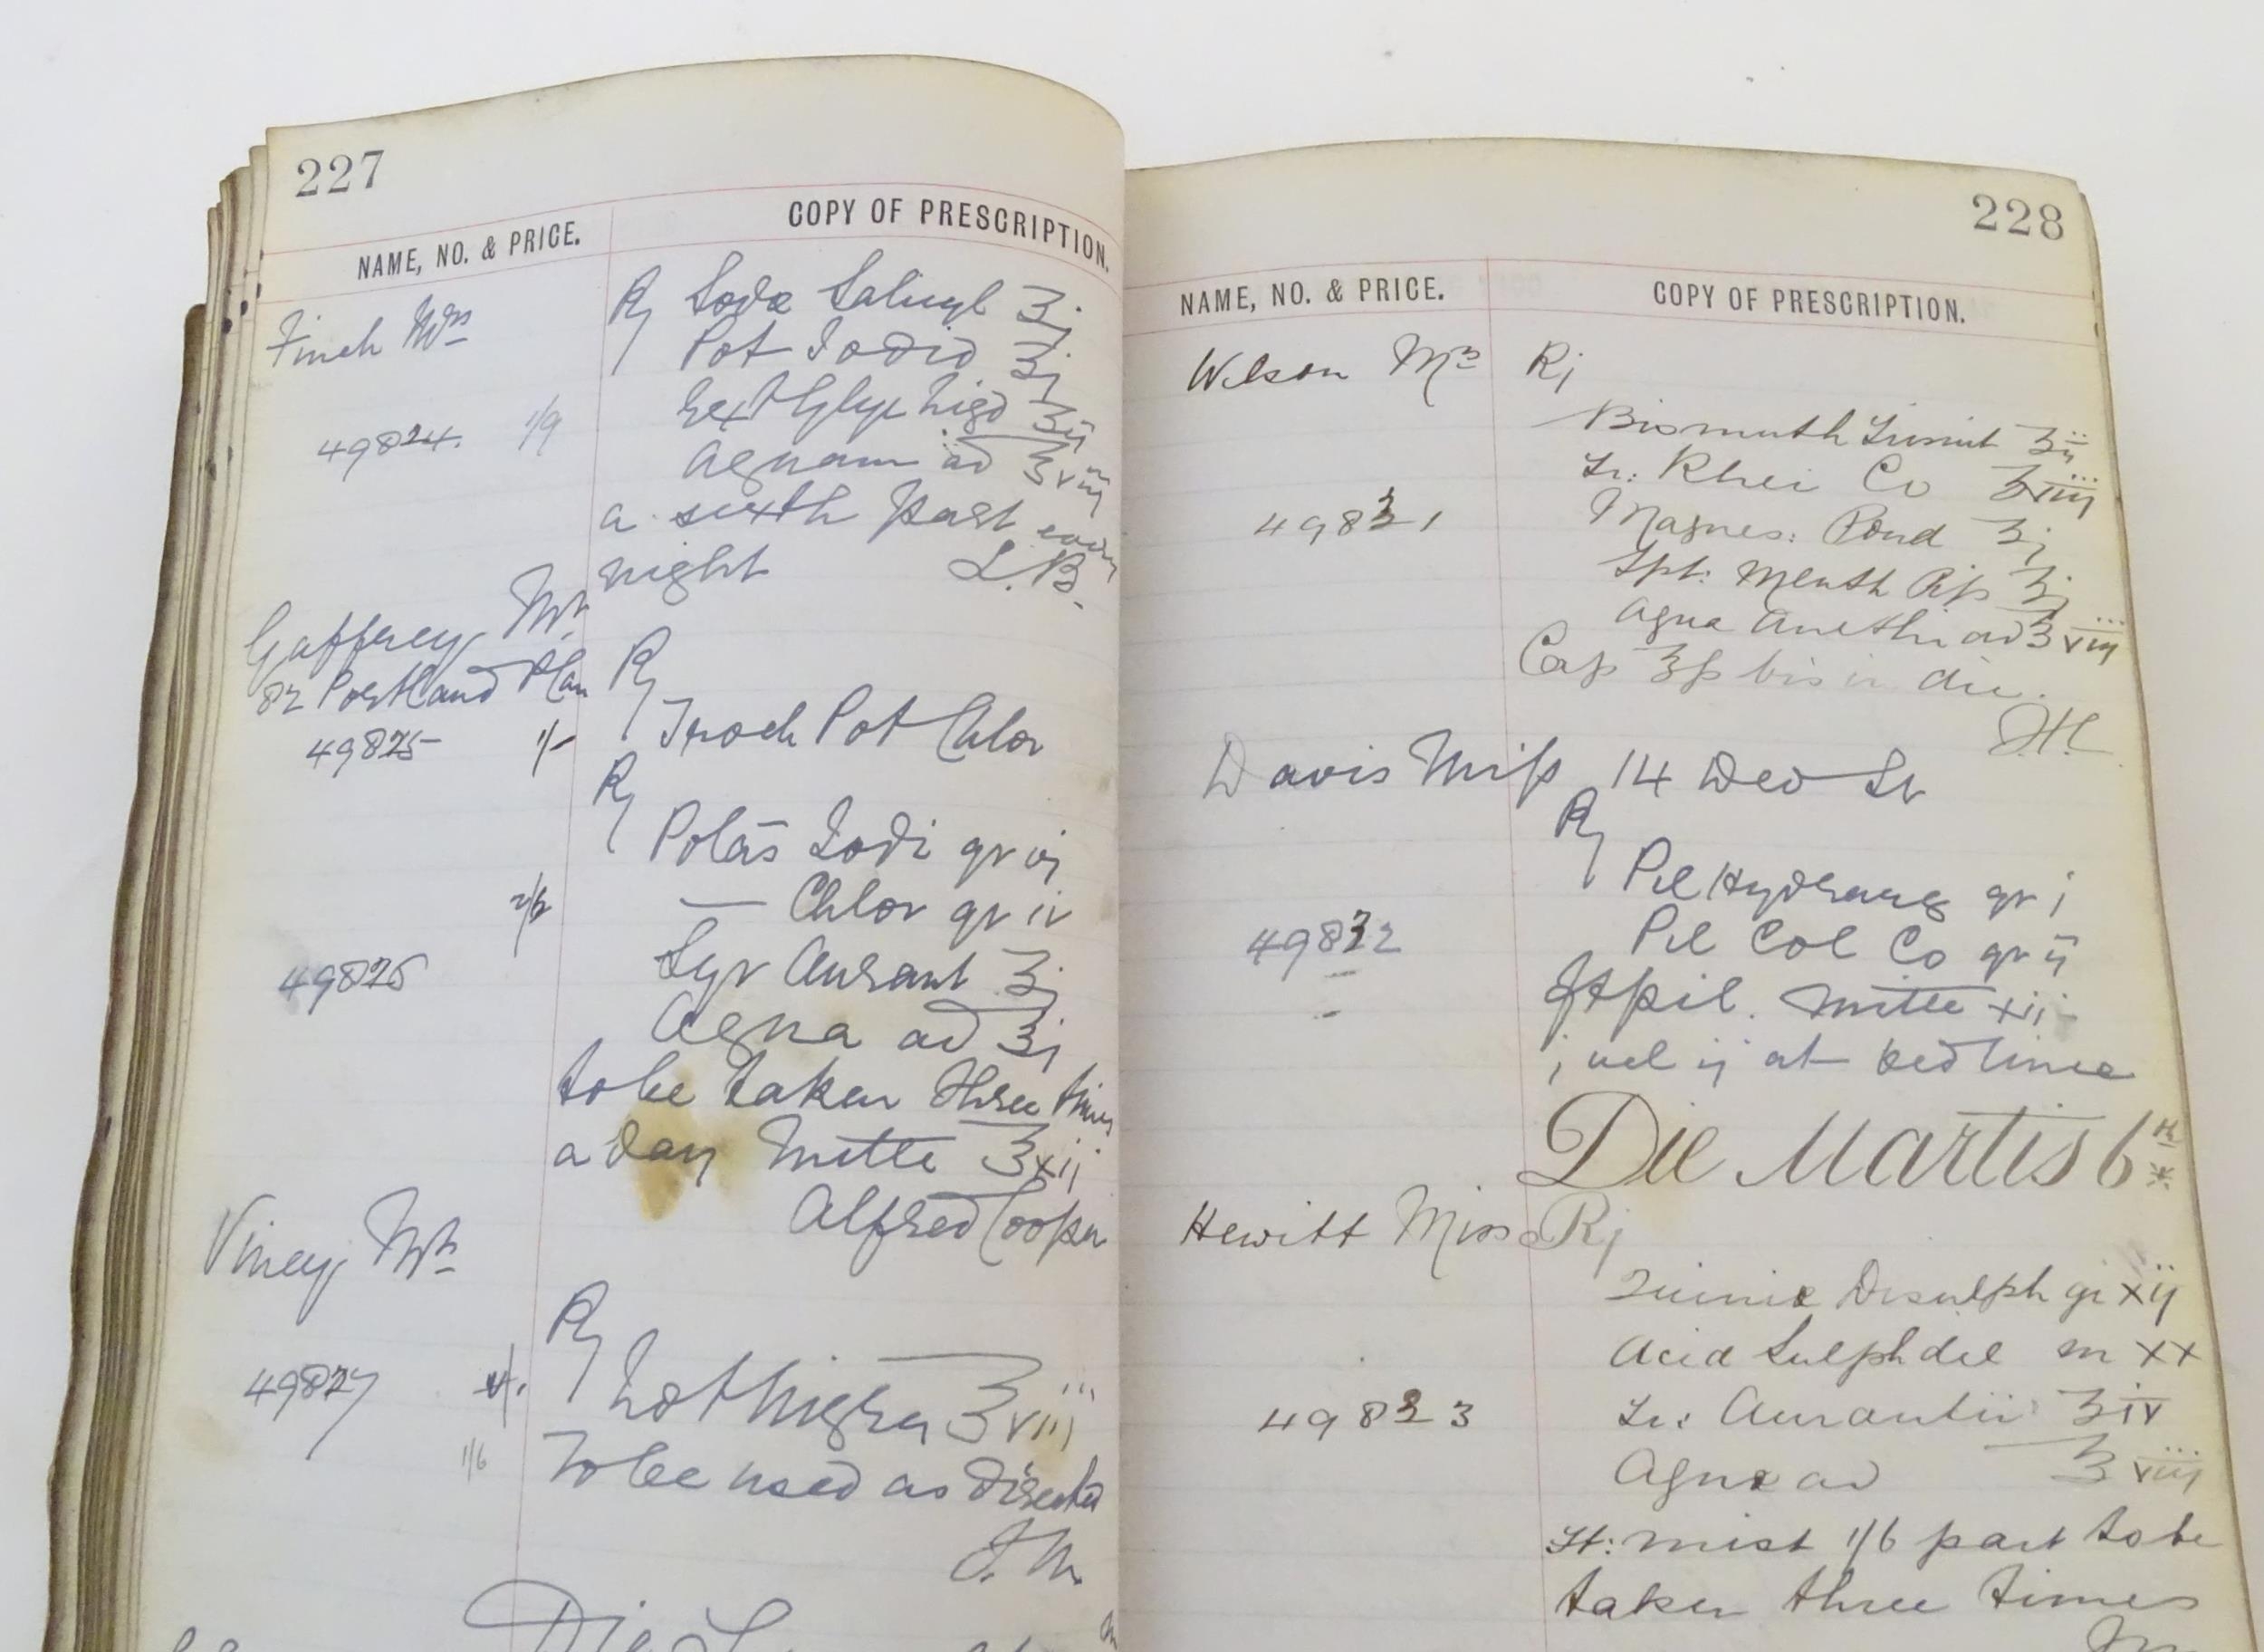 227
NAME, NO. & PRICE.
COPY OF PRESCRIPTION.
Finch Mrs
℞ Sodæ Salicyl ʒj
Pot Iodid ʒj
49824. 1/9
Ext Glyc Liqd ʒij
Aquam ad ℥viij
a sixth part every
night L.B.
Gaffney Mr.
82 Portland Plac
℞
49825 1/-
Troch Pot Chlor
℞
Potas Iodi gr vj
2/6
— Chlor gr iv
49826
Syr Aurant ʒj
Aqua ad ℥j
to be taken three times
a day Mitte ℥xij
Alfred Cooper
Viney Mr
℞
49827
Lot Nigra ℥viij
1/6
To be used as directed
J.M.
Die
228
NAME, NO. & PRICE.
COPY OF PRESCRIPTION.
Wilson Mrs
℞
Bismuth Trisnit ʒij
Tr: Rhei Co ʒviij
49831
Magnes: Pond ʒj
Spt: Menth Pip ʒj
Aqua Anethi ad ℥viij
Cap ℥ß bis in die.
Davis Miss 14 Dev Sr
℞
Pil Hydrarg gr j
49832
Pil Col Co gr ij
ft pil. Mitte xij
j vel ij at bedtime
Die Martis 6th
Hewitt Miss
℞
Quiniæ Disulph gr xij
Acid Sulph dil m xx
49833
Tr: Aurantii ʒiv
Aquæ ad ℥viij
Ft: mist 1/6 part to be
taken three times